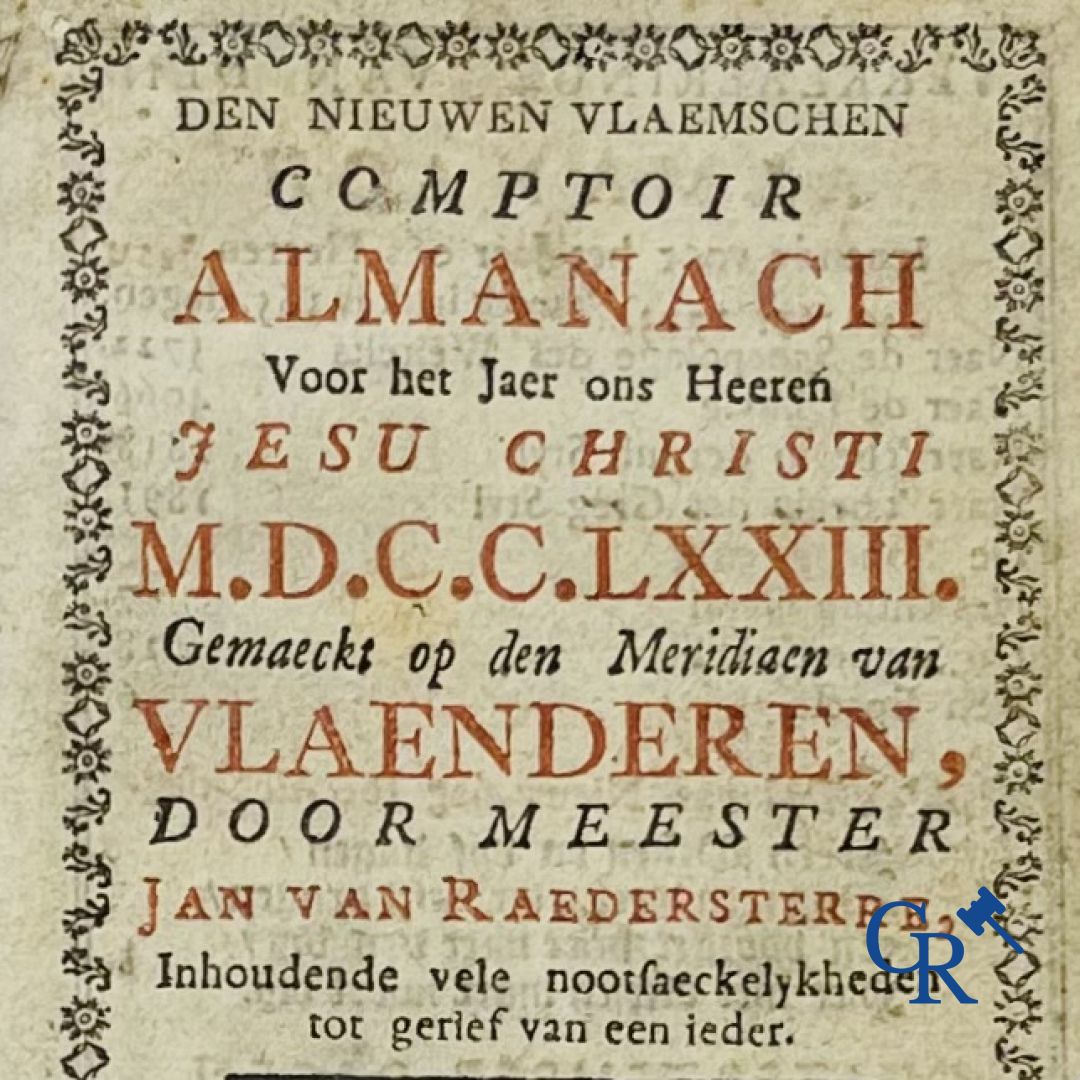 DEN NIEUWEN VLAEMSCHEN
COMPTOIR
ALMANACH
Voor het Jaer ons Heeren
JESU CHRISTI
M.D.C.C.LXXIII.
Gemaeckt op den Meridiaen van
VLAENDEREN,
DOOR MEESTER
JAN VAN RAEDERSTERRE,
Inhoudende vele nootſaeckelykheden
tot gerief van een ieder.
CR